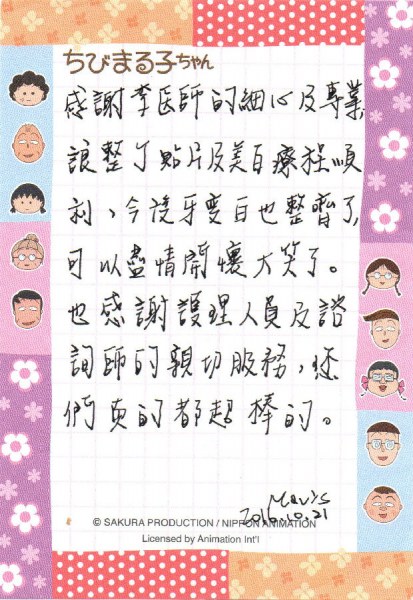 ちびまる子ちゃん
感謝李医師的細心及專業
讓整個貼片及美白療程順
利、今後牙變白也整齊了,
可以盡情開懷大笑了。
也感謝護理人員及諮
詢師的親切服務,你
們真的都超棒的。
Mavis
2016.10.21
© SAKURA PRODUCTION / NIPPON ANIMATION
Licensed by Animation Int'l